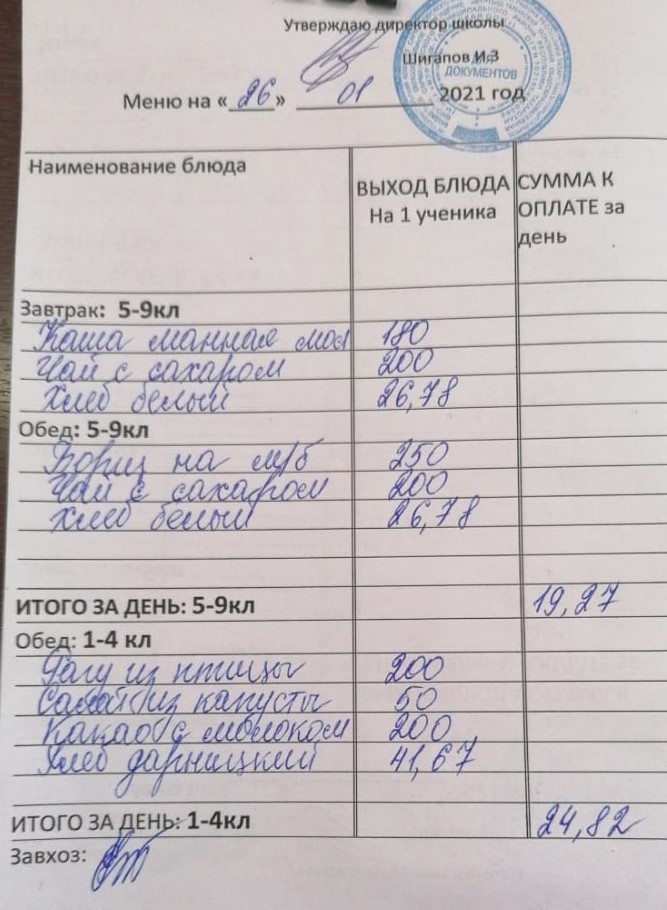 Утверждаю директор школы
Шигапов И.З
ДЛЯ ДОКУМЕНТОВ
Меню на «26» 01 2021 год
Наименование блюда
ВЫХОД БЛЮДА На 1 ученика
СУММА К ОПЛАТЕ за день
Завтрак: 5-9кл
Каша манная мол 180
Чай с сахаром 200
Хлеб белый 26,78
Обед: 5-9кл
на м/б 250
Чай с сахаром 200
Хлеб белый 26,78
ИТОГО ЗА ДЕНЬ: 5-9кл 19,27
Обед: 1-4 кл
Рагу из птицы 200
Салат из капусты 50
Какао с молоком 200
Хлеб дарницкий 41,67
ИТОГО ЗА ДЕНЬ: 1-4кл 24,82
Завхоз: